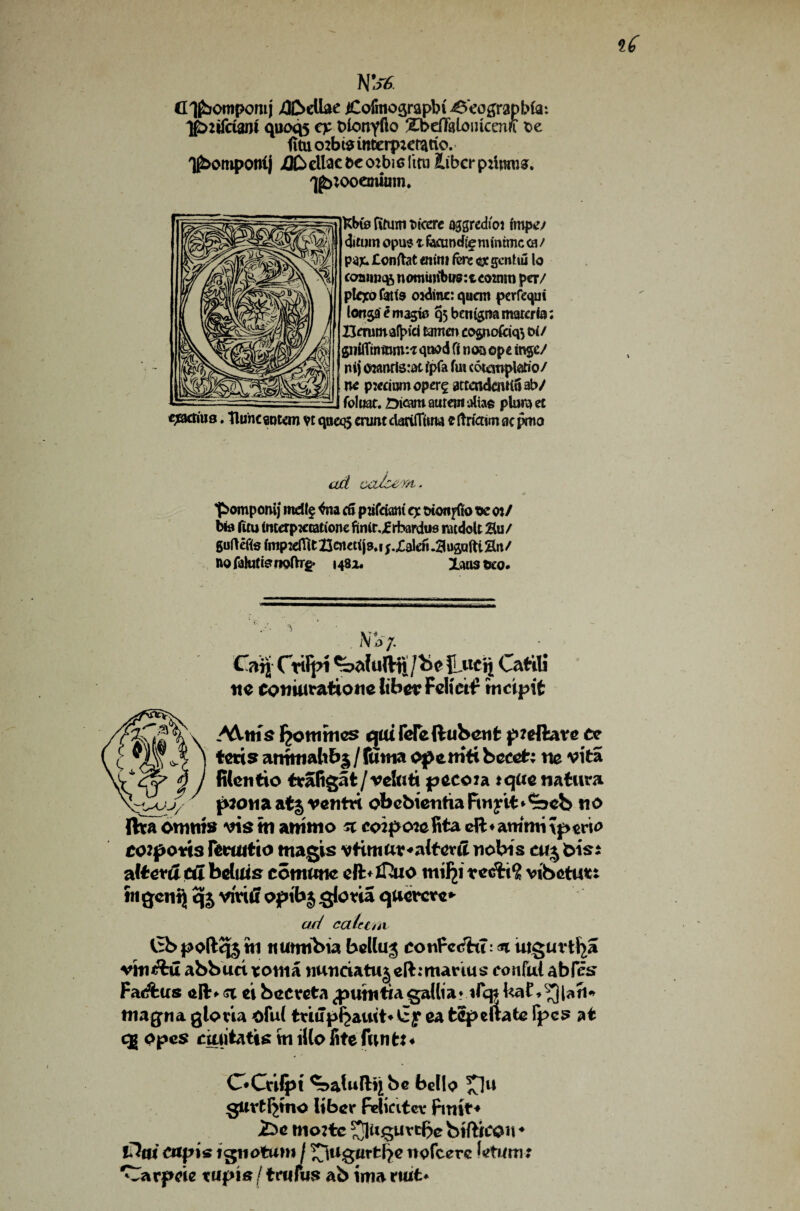 26
N°56.
Pomponij Mellae Cosmographi Geographia:
Prisciani quoq3 ex dionysio Thessalonicensi de
situ orbis interpretatio.
Pomponij Mellae de orbis situ Liber primus.
Prooemium.
Orbis situm dicere aggredior impe/
ditum opus ⁊ facundiȩ minime ca/
pax. Constat enim fere ex gentiū lo
corumq3 nominibus: ⁊ eorum per/
plexo satis ordine: quem persequi
longa ē magis q̃3 benigna materia:
Verum aspici tamen cognosciq3 di/
gnissimum: ⁊ quod si non ope inge/
nij orantis: at ipsa sui cōtemplatio/
ne precium operȩ attendentiū ab/
soluat. Dicam autem alias plura et
exactius. Nunc autem vt queq3 erunt clarissima ⁊ strictim ac pmo
ad calcem.
Pomponij mellȩ vna cū prisciani ex dionysio de or/
bis situ interpretatione finit. Erhardus ratdolt Au/
gustēsis impressit Venetijs. 15. Calen. Augusti An/
no salutis nostrȩ. 1482. Laus deo.
N°7.
Caij Crispi Salustij / de Lucij Catili
ne coniuratione liber Felicit' incipit
Mnis homines qui sese student prestare ce
teris animalib3 / suma ope niti decet: ne vitā
silentio trāsigāt / veluti pecora ⁊ que natura
prona at3 ventri obedientia finxit. Sed nō
stra omnis vis in animo ⁊ corpore sita est. animi iperio
corporis seruitio magis vtimur. alterū nobis cu3 dis:
alterū cū beluis comune est. Quo mihi recti9 videtur:
ingenij q̃3 viriū opib3 gloriā querere.
ad calcem
Ed post̃q3 in numidia bellu3 confectū: ⁊ iugurthā
vinctū adduci romā nunciatu3 est: marius consul absēs
Factus est. ⁊ ei decreta puintia gallia. isq3 kal'. Jan.
magna gloria cōsul triūphauit. Ex ea tēpestate spes at
q3 opes ciuitatis in illo site sunt:
C. Crispi Salustij de bello Ju
gurthino liber Feliciter finit.
De morte Jugurthe disticon.
Qui cupis ignotum / Jugurthe noscere letum:
Tarpeie rupis / trusus ab ima ruit.